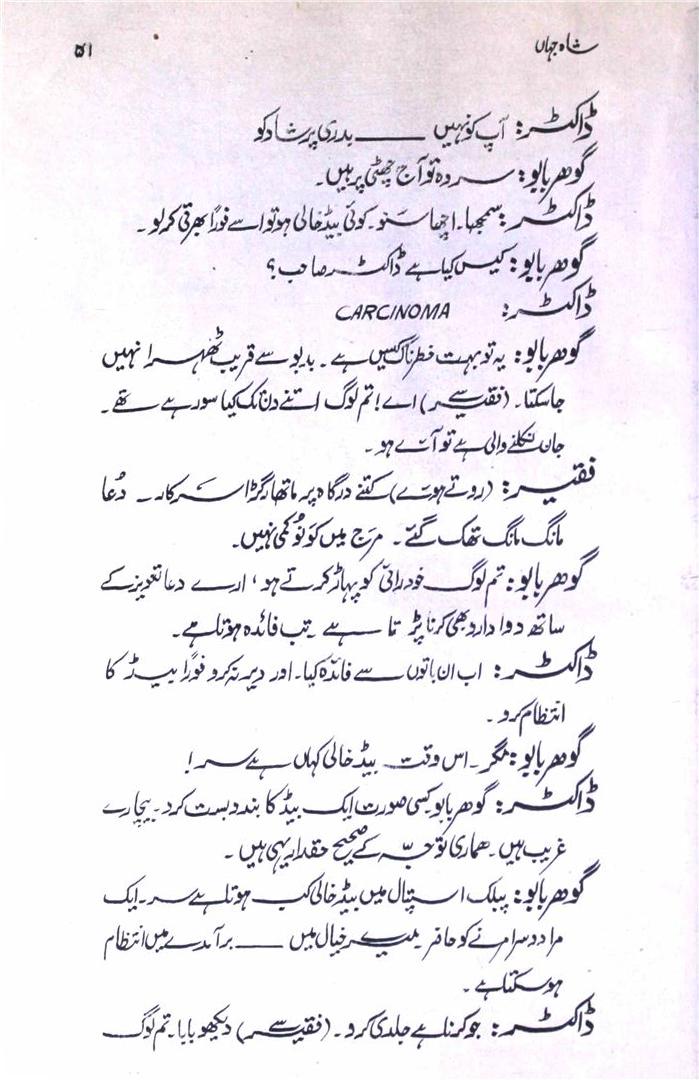 شاہ جہاں ۵۱
ڈاکٹر: آپ کو نہیں ــــــ بدری پرشاد کو
گوھر بابو: سر وہ تو آج چھٹی پر ہیں۔
ڈاکٹر: سمجھا۔ اچھا سنو۔ کوئی بیڈ خالی ہو تو اسے فوراً بھرتی کر لو۔
گوھر بابو: کیس کیا ہے ڈاکٹر صاحب؟
ڈاکٹر: CARCINOMA
گوھر بابو: یہ تو بہت خطرناک کیس ہے۔ بدبو سے قریب ٹھہرا نہیں
جا سکتا۔ (فقیر سے) اے! تم لوگ اتنے دن تک کیا سو رہے تھے۔
جان نکلنے والی ہے تو آئے ہو۔
فقیر: (روتے ہوئے) کتنے درگاہ پر ماتھا رگڑا سرکار۔ دُعا
مانگ مانگ تھک گئے۔ مرَج میں کَونُو کمی نہیں۔
گوھر بابو: تم لوگ خود رائی کو پہاڑ کرتے ہو، ارے دعا تعویز کے
ساتھ دوا دارو بھی کرنا پڑتا ہے۔ تب فائدہ ہوتا ہے۔
ڈاکٹر: اب ان باتوں سے فائدہ کیا۔ اور دیر نہ کرو فوراً بیڈ کا
انتظام کرو۔
گوھر بابو: مگر۔ اس وقت بیڈ خالی کہاں ہے سر!
ڈاکٹر: گوھر بابو کسی صورت ایک بیڈ کا بندوبست کرو۔ بیچارے
غریب ہیں۔ ھماری توجہّ کے صحیح حقدار یہی ہیں۔
گوھر بابو: پبلک اسپتال میں بیڈ خالی کب ہوتا ہے سر۔ ایک
مرا دوسرا مرنے کو حاضر۔ میرے خیال میں ــــــ برآمدے میں انتظام
ہو سکتا ہے۔
ڈاکٹر: جو کرنا ہے جلدی کرو۔ (فقیر سے) دیکھو بابا۔ تم لوگ